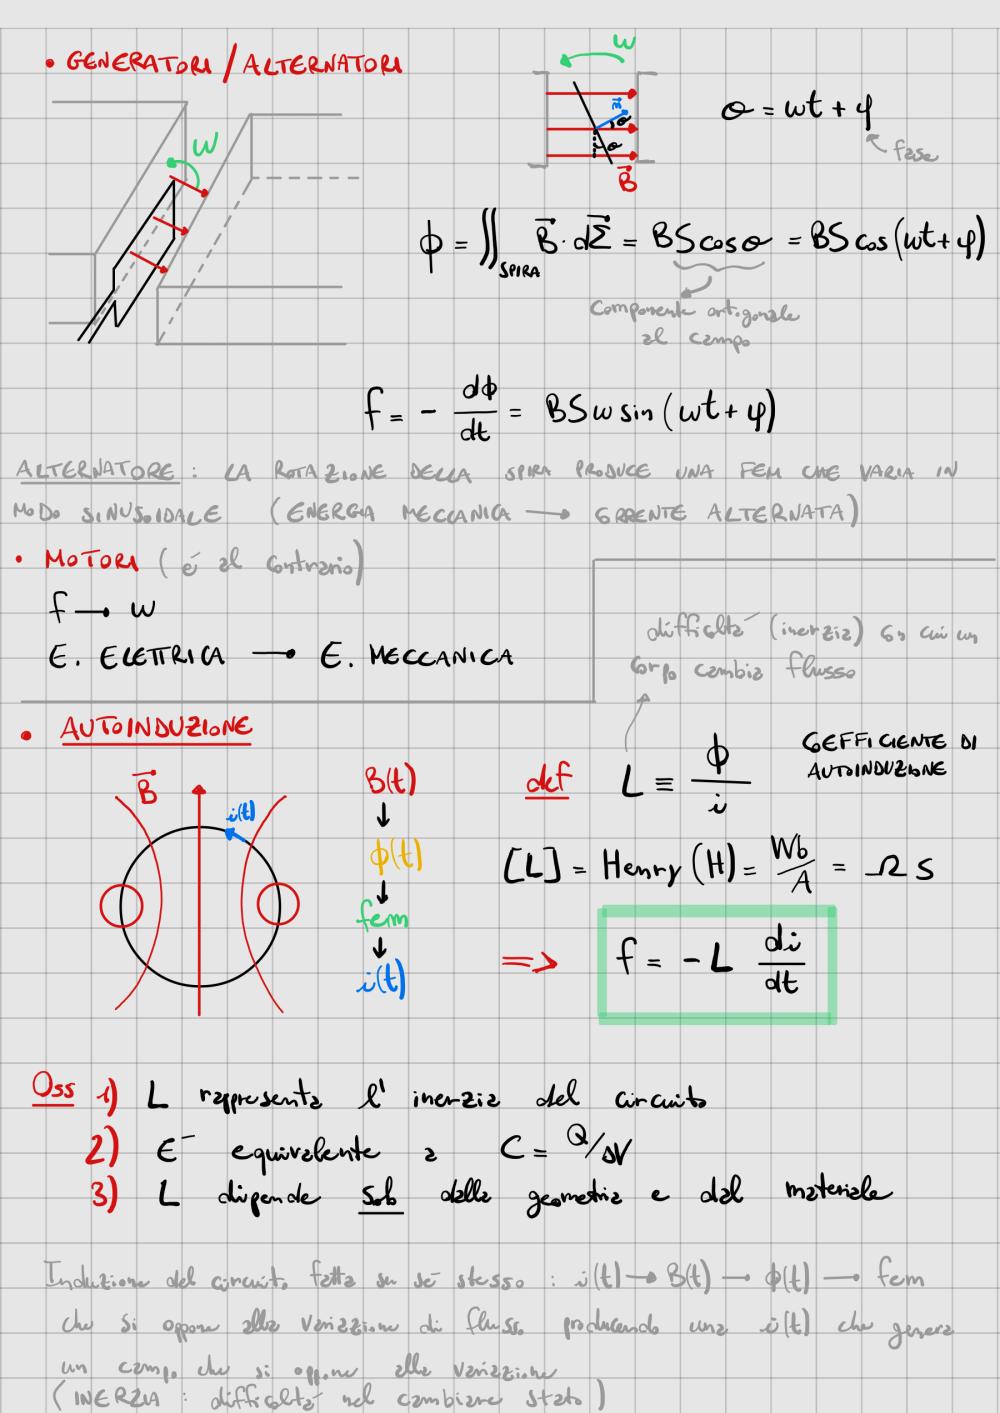 • GENERATORI / ALTERNATORI
ω
ω
n⃗
θ
θ
B⃗
θ = ωt + φ
fase
ϕ = ∬SPIRA B⃗ · dΣ⃗ = BS cos θ = BS cos (ωt + φ)
componente ortogonale
al campo
f = - dϕ/dt = BSω sin (ωt + φ)
ALTERNATORE : LA ROTAZIONE DELLA SPIRA PRODUCE UNA FEM CHE VARIA IN
MODO SINUSOIDALE (ENERGIA MECCANICA → CORRENTE ALTERNATA)
• MOTORI (é al contrario)
f → ω
E. ELETTRICA → E. MECCANICA
difficoltà (inerzia) con cui un
corpo cambia flusso
• AUTOINDUZIONE
B⃗
i(t)
B(t)
↓
ϕ(t)
↓
fem
↓
i(t)
def L ≡ ϕ/i
COEFFICIENTE DI
AUTOINDUZIONE
[L] = Henry (H) = Wb/A = Ω s
⇒ f = - L di/dt
Oss 1) L rappresenta l' inerzia del circuito
2) E' equivalente a C = Q/ΔV
3) L dipende solo dalla geometria e dal materiale
Induzione del circuito fatta su sé stesso : i(t) → B(t) → ϕ(t) → fem
che si oppone alla variazione di flusso producendo una i(t) che genera
un campo che si oppone alla variazione
(INERZIA : difficoltà nel cambiare stato)